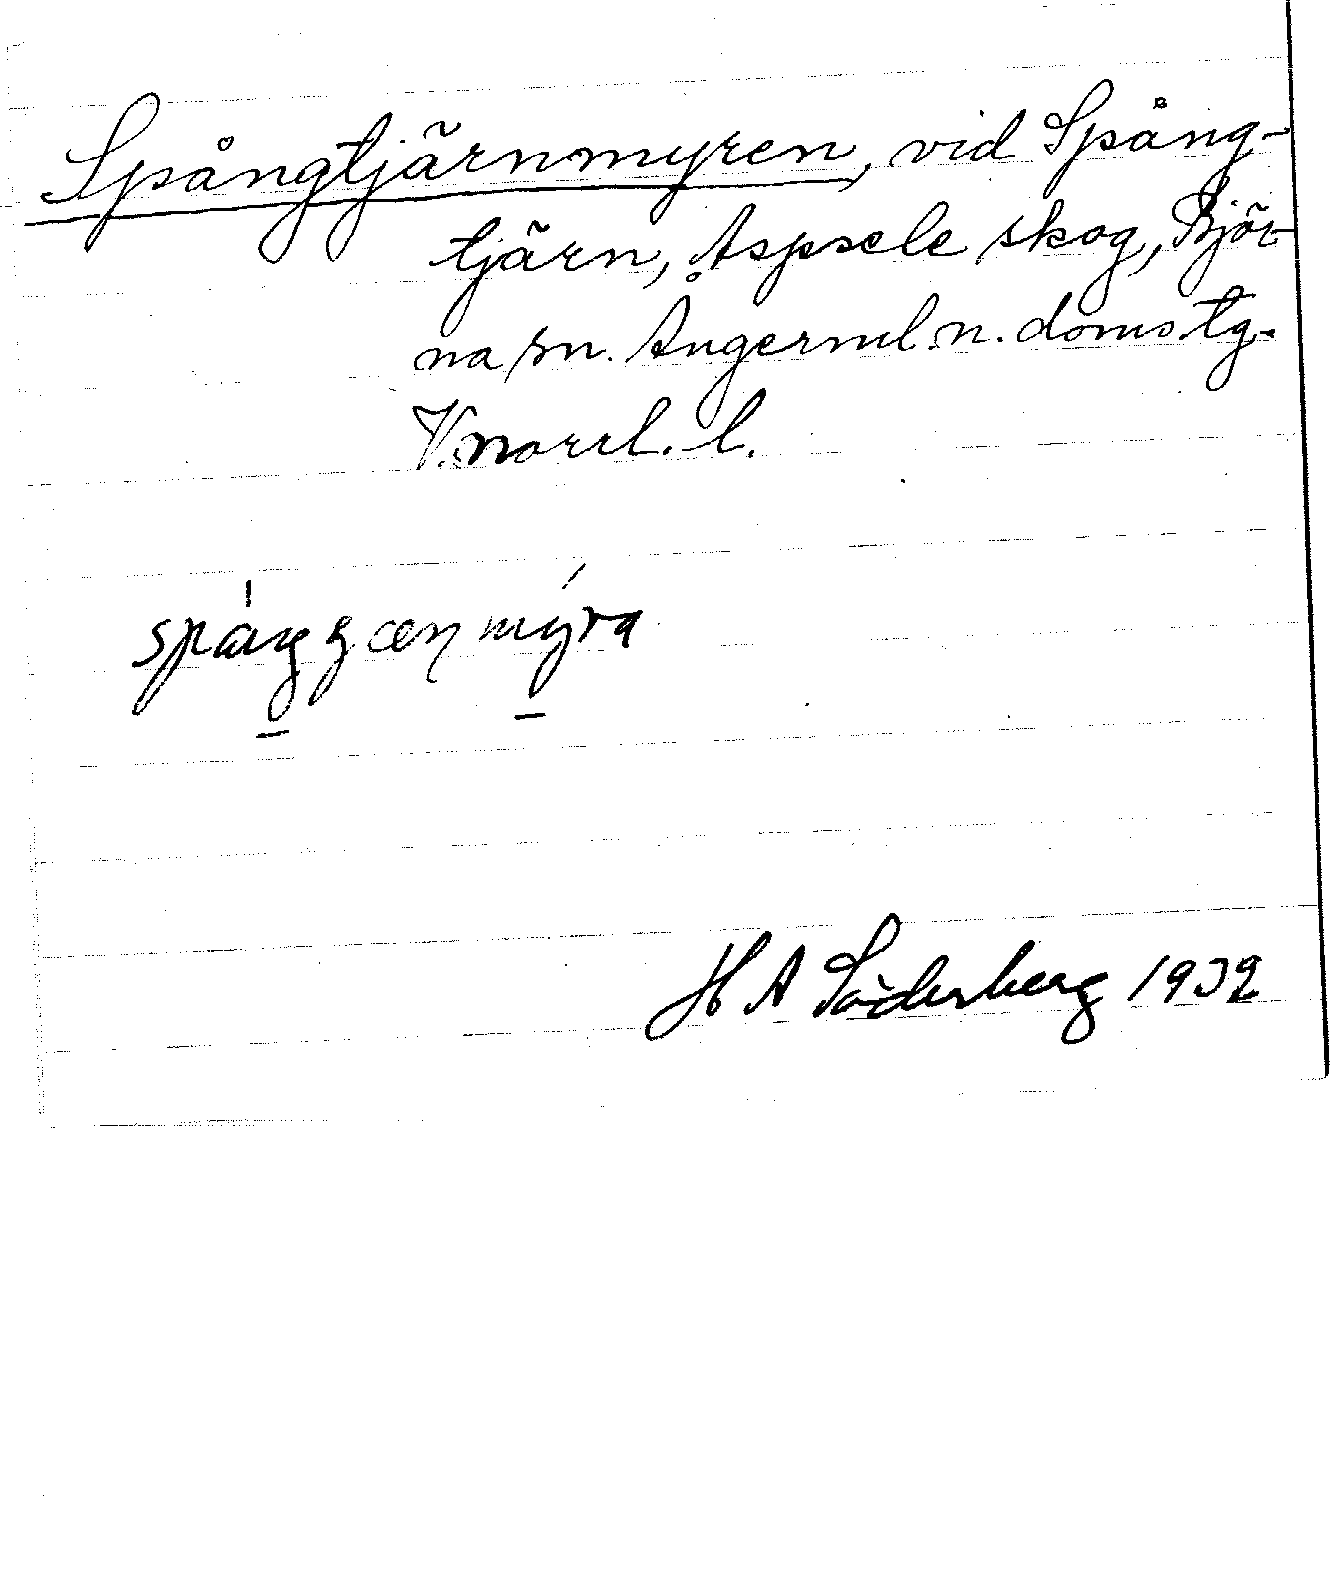 Spångtjärnmyren, vid Spång-
tjärn, Aspsele skog, Björ-
na sn. Ångerml. n. doms.tg.
V.norrl. l.
H A Söderberg 1932